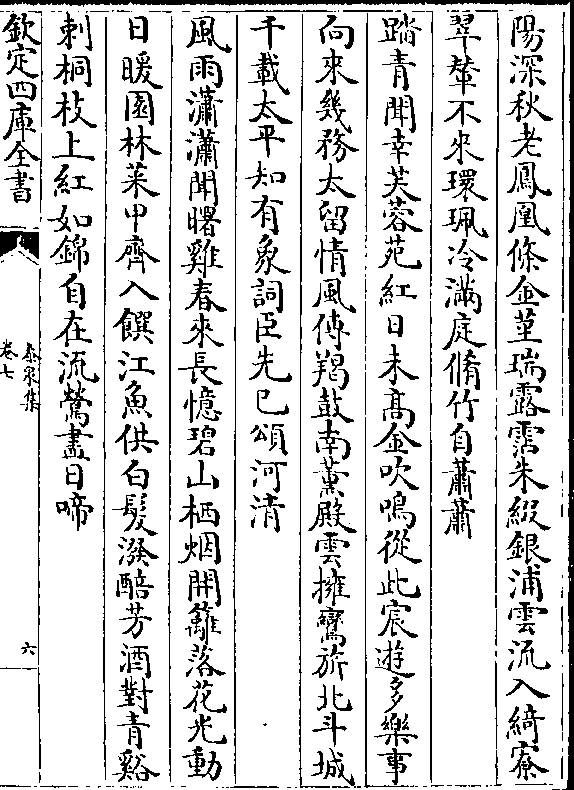 陽深秋老鳳凰條金莖瑞露霑朱綴銀浦雲流入綺寮
翠輦不來環珮冷滿庭脩竹自蕭蕭
踏青聞幸芙蓉苑紅日未髙金吹鳴從此宸遊多樂事
向來幾務太留情風傳羯鼓南薫殿雲擁鸞旂北斗城
千載太平知有象詞臣先已頌河清
風雨瀟瀟聞曙雞春來長憶碧山栖烟開籬落花光動
日暖園林菜甲齊入饌江魚供白髪潑醅芳酒對青谿
刺桐枝上紅如錦自在流鶯盡日啼
欽定四庫全書
泰泉集
卷七
六